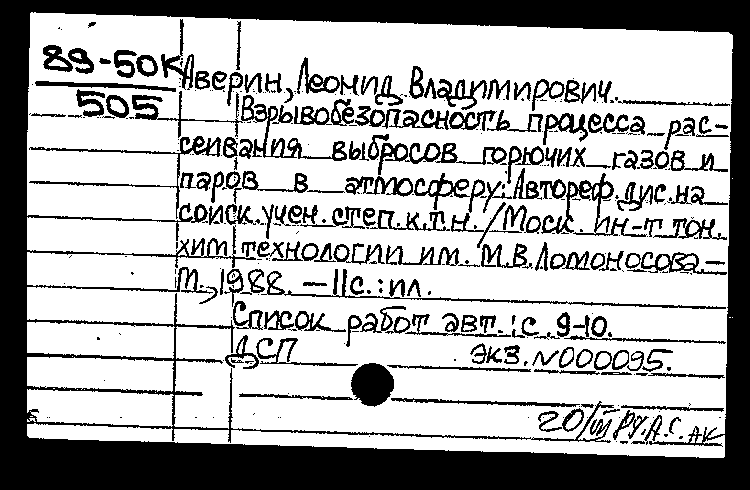 89-50К
505
Аверин, Леонид Владимирович.
Взрывобезопасность процесса рас-
сеивания выбросов горючих газов и
паров в атмосферу: Автореф. дис. на
соиск. учен. степ. к.т.н. / Моск. ин-т тон.
хим. технологии им. М.В. Ломоносова. -
М., 1988. - 11с. : ил.
Список работ авт. : с. 9-10.
ДСП экз. N000095.
20/III